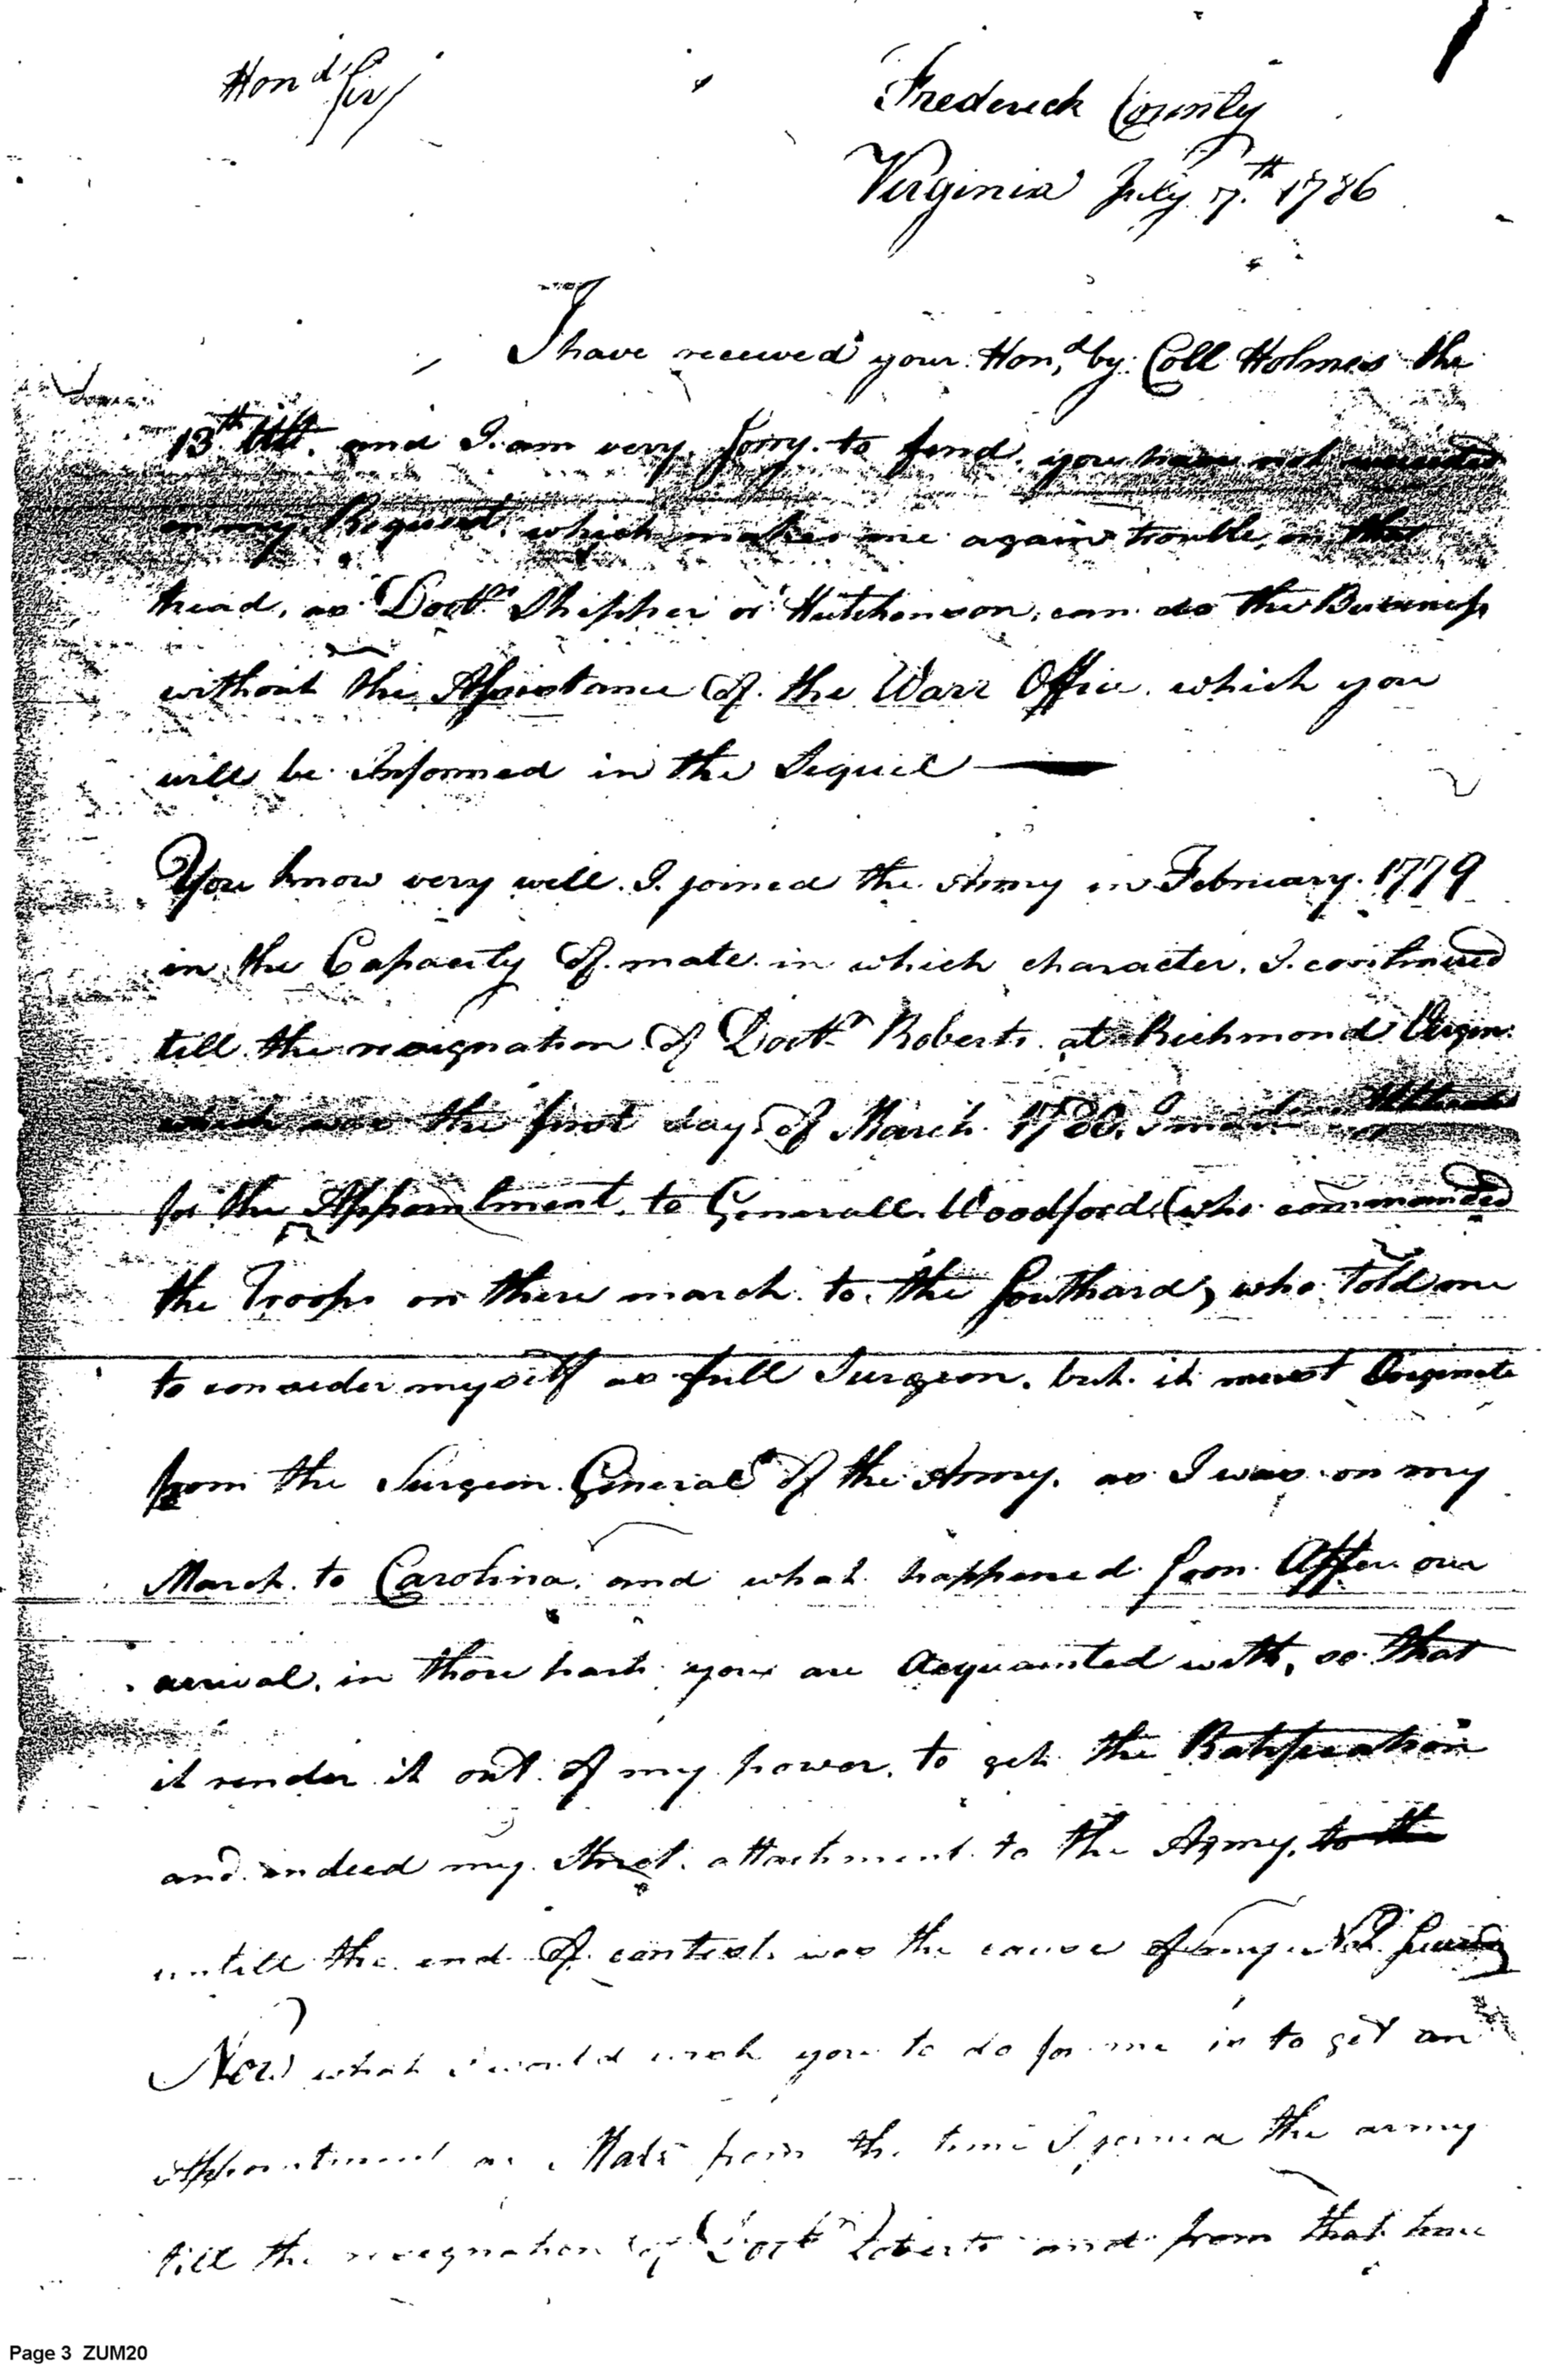 Hon.d Sir/
Frederick County
Virginia July 7.th 1786
I have received your Hon,d by Coll Holmes the
13th Ult. and I am very Sorry to find, you have not
on my Request, which makes me again trouble, on that
head, as Doct.r Shippen or Hutchenson, can do the Business
without the Assistance of the Warr Office which you
will be Informed in the Sequel
You know very well I joined the Army in February 1779
in the Capacity of mate in which character, I continued
till the resignation of Doct.r Roberts at Richmond Virgin.
which was the first day of March 1780. I made
for the Appointment, to Generall Woodford (who commanded
the Troops on there march to the Southard) who told me
to consider myself as full Surgeon, but it must Originate
from the Surgeon General of the Army. as I was on my
March to Carolina, and what happened soon After our
arrival, in those parts you are Acquainted with, so that
it render it out of my power, to get the Ratification
and indeed my Strict attachment to the Army, to the
untill the end of contest, was the cause of my Not
Now what I would wish you to do for me is to get an
Appointment as Mate from the time I joined the army
till the resignation of Doct.r Roberts and from that time
Page 3 ZUM20